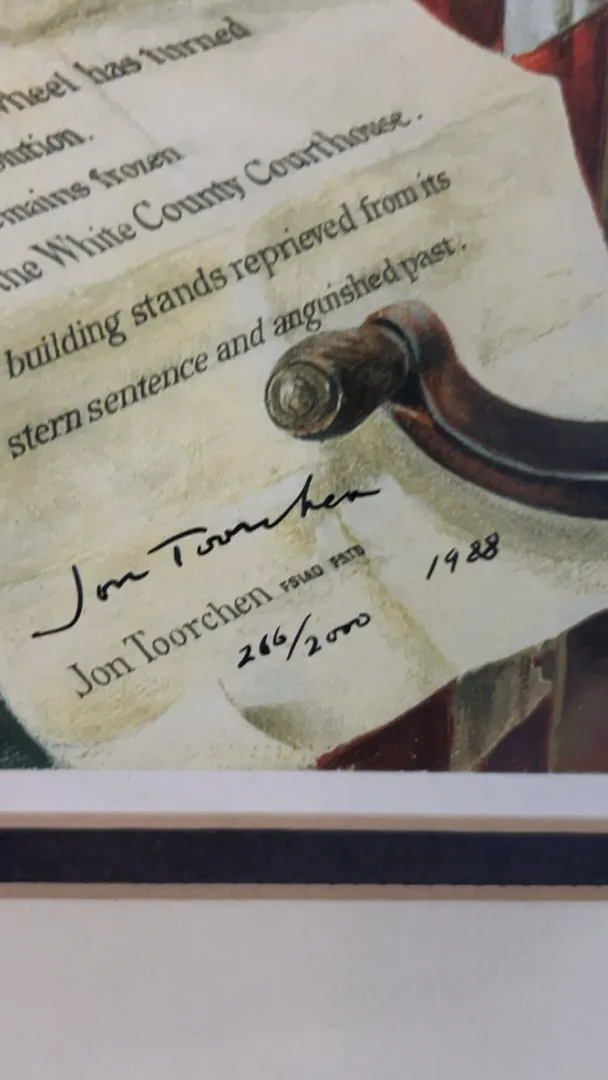 wheel has turned
ution.
mains frozen
the White County Courthouse.
building stands reprieved from its
stern sentence and anguished past.
Jon Toorchen
Jon Toorchen FSIAD FSTD
266/2000
1988